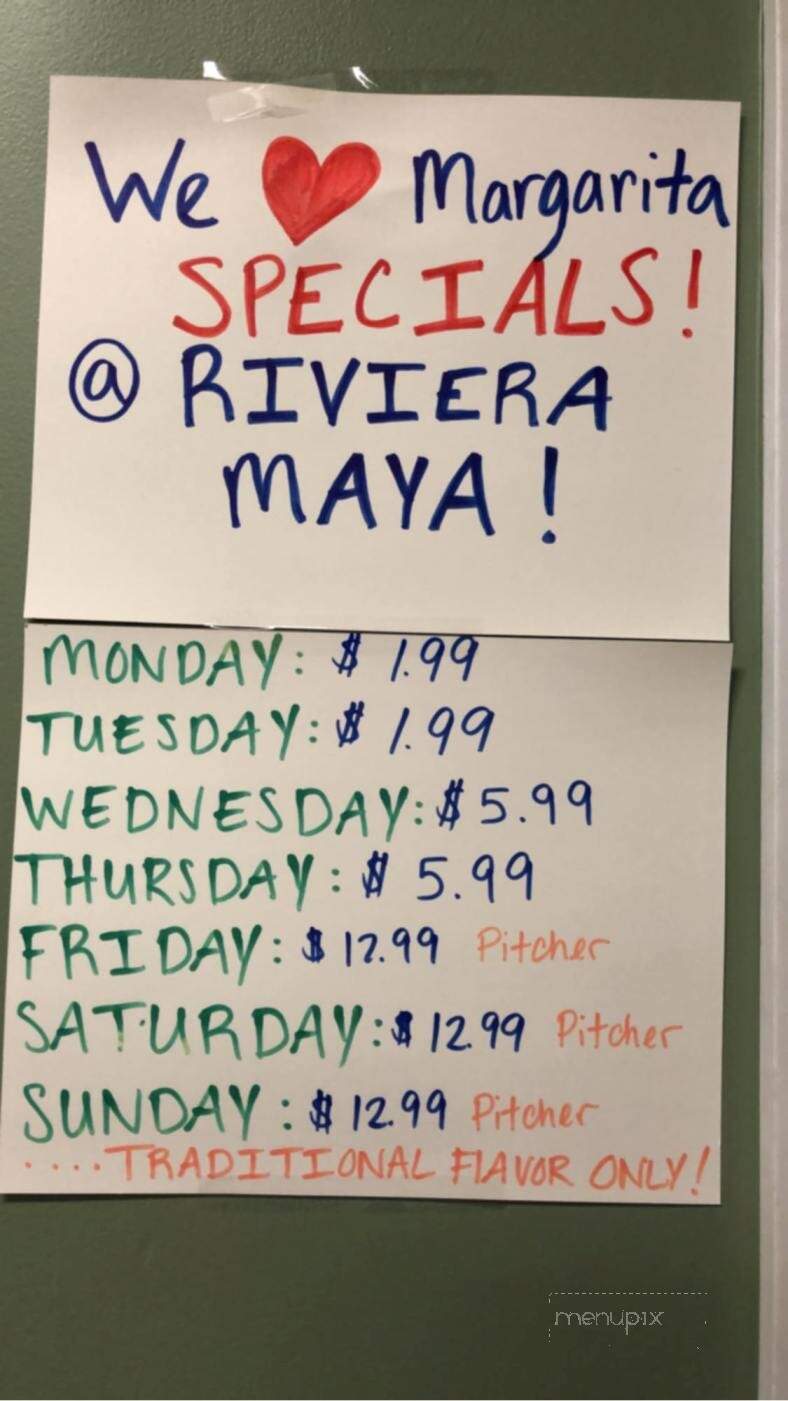 We ❤ Margarita
SPECIALS!
@ RIVIERA
MAYA!
MONDAY: $ 1.99
TUESDAY: $ 1.99
WEDNESDAY: $ 5.99
THURSDAY: $ 5.99
FRIDAY: $ 12.99 Pitcher
SATURDAY: $ 12.99 Pitcher
SUNDAY: $ 12.99 Pitcher
....TRADITIONAL FLAVOR ONLY!
menupix